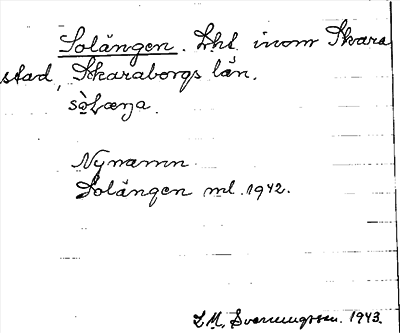 Solängen. Lht. inom Skara
stad, Skaraborgs län.
Nynamn.
Solängen ml. 1942.
1943.